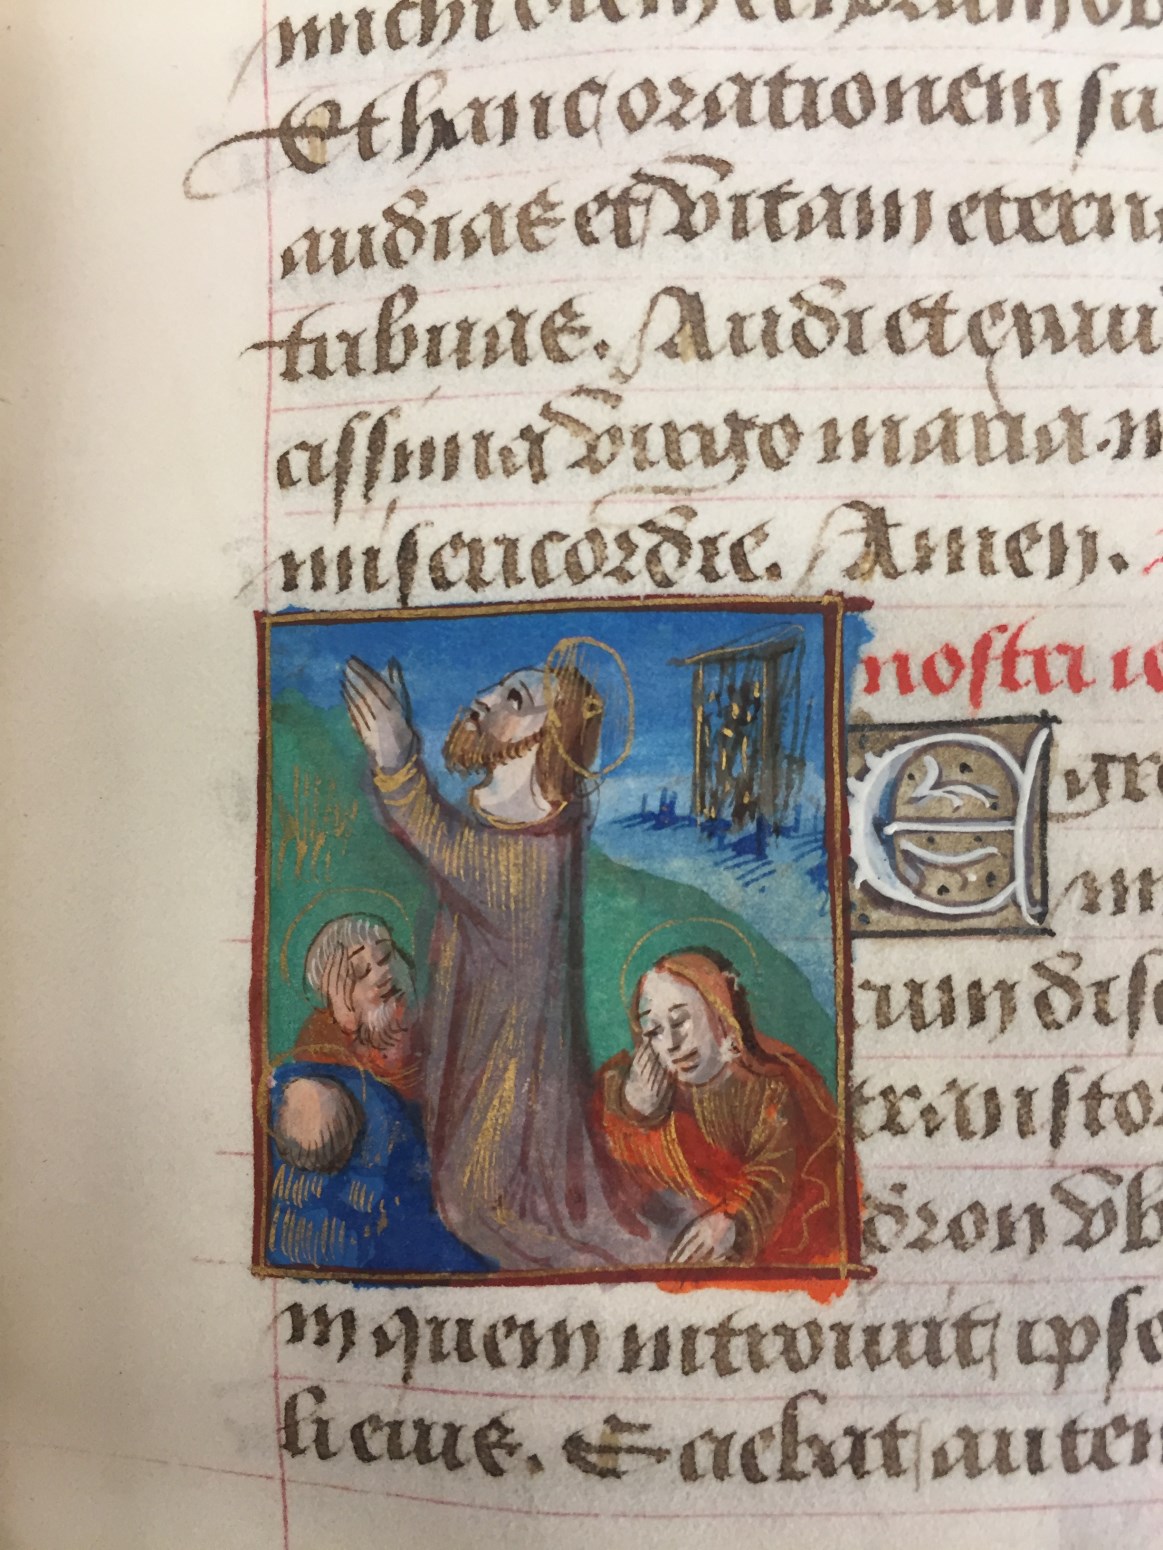 michi diem et horam ob
Et hanc orationem su
audias et vitam etern
tribuas. Audi et exau
cissima virgo maria m
misericordie. Amen.
nostri ie
Egre
trans tor
dron vb
in quem introiuit ipse
li eius. Sciebat autem